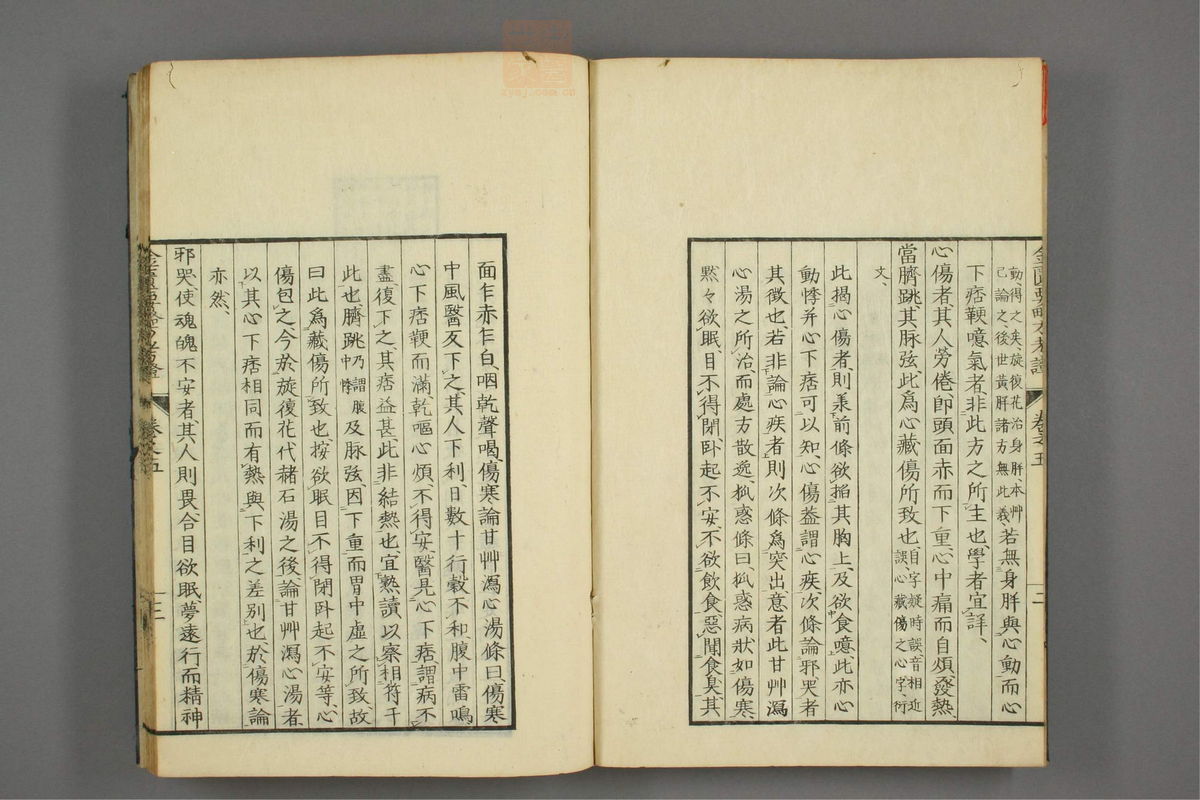 動、得之矣、旋復花治身胖、本艸
己論之、後世黃胖諸方無此義、若無身胖與心動而心
下痞鞕噫氣者、非此方之所主也、學者宜詳、
心傷者、其人勞倦、卽頭面赤而下重、心中痛而自煩發熱、
當臍跳、其脉弦、此爲心藏傷所致也、自字疑時誤、音相近
誤、心藏傷之心字、衍
文、
此揭心傷者、則承前條欲搯其胸上及欲食噫、此亦心
動悸并心下痞可以知、心傷葢謂心疾、次條論邪哭者
其徵也、若非論心疾者、則次條爲突出、意者此甘艸瀉
心湯之所治而處方散逸、狐惑條曰、狐惑病狀如傷寒、
默々欲眠、目不得閉、臥起不安、不欲飮食、惡聞食臭、其
金匱要略方考證 卷之五 二
面乍赤乍白、咽乾聲喝、傷寒論甘艸瀉心湯條曰、傷寒
中風醫反下之、其人下利、日數十行、穀不和、腹中雷鳴、
心下痞鞕而滿、乾嘔心煩、不得安、醫見心下痞、謂病不
盡、復下之、其痞益甚、此非結熱也、宜熟讀以察相符于
此也、臍跳乃謂腹中悸及脉弦、因下重而胃中虛之所致、故
曰此爲藏傷所致也、按欲眠目不得閉臥起不安等、心
傷包之、今於旋復花代赭石湯之後、論甘艸瀉心湯者
以其心下痞相同而有熱與下利之差別也、於傷寒論
亦然、
邪哭、使魂魄不安者、其人則畏、合目欲眠、夢遠行而精神
卷之五 三
zysj.com.cn